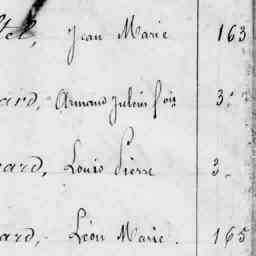 tel, Jean Marie 163
ard, Armand Julien 3.
ard, Louis Pierre 3.
ard, Léon Marie. 165